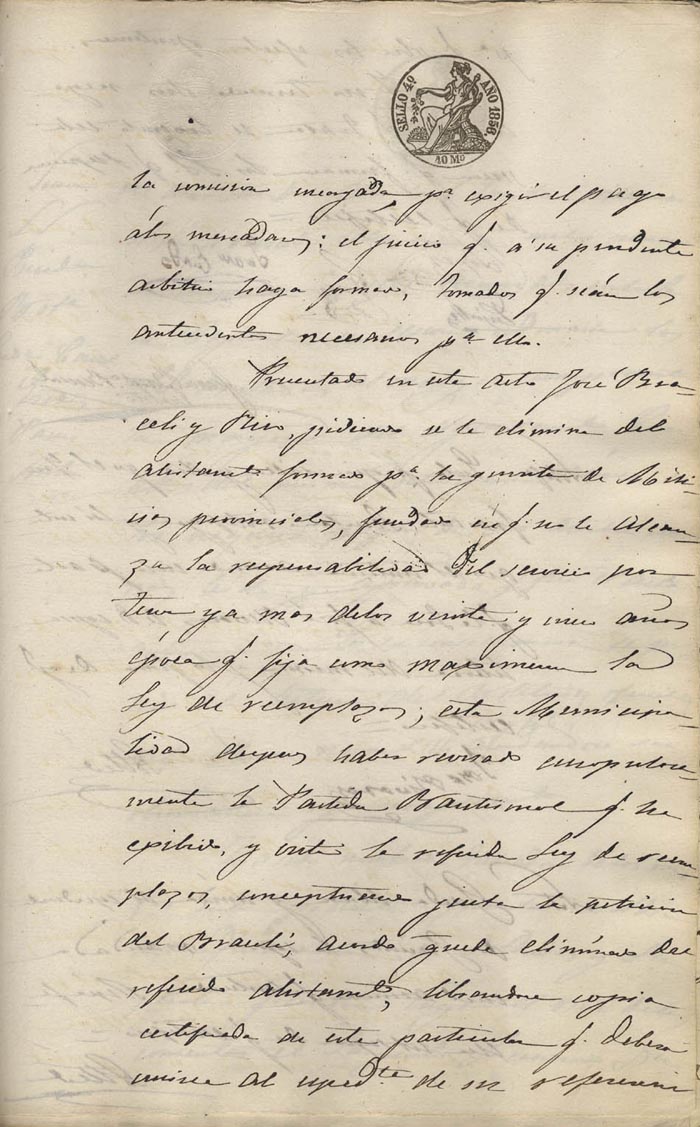 SELLO 4º AÑO 1856.
40 Mº
la comision encargada, pª exigir el pago
álos mercaderes: el juicio q. á su prudente
arbitrio haga formar, tomados q. sean los
antecedentes necesarios pª ello.
Presentado en este acto José Bra-
celi y Rico, pidiendo se le elimine del
alistamtº formado pª la quinta de Mili-
cias provinciales, fundado en q. no le alcan-
za la responsabilidad del servicio por
tener ya mas delos veinte y cinco años
época q. fija como maximum la
Ley de reemplazos; esta Municipa-
lidad despues haber revisado escrupulosa-
mente la Partida Bautismal q. ha
exibido, y vista la referida Ley de reem-
plazos, conceptuando justa la peticion
del Braceli, acordo quede eliminado del
referido alistamtº, librandose copia
certificada de este particular q. deberá
unirse al espedte de su referencia